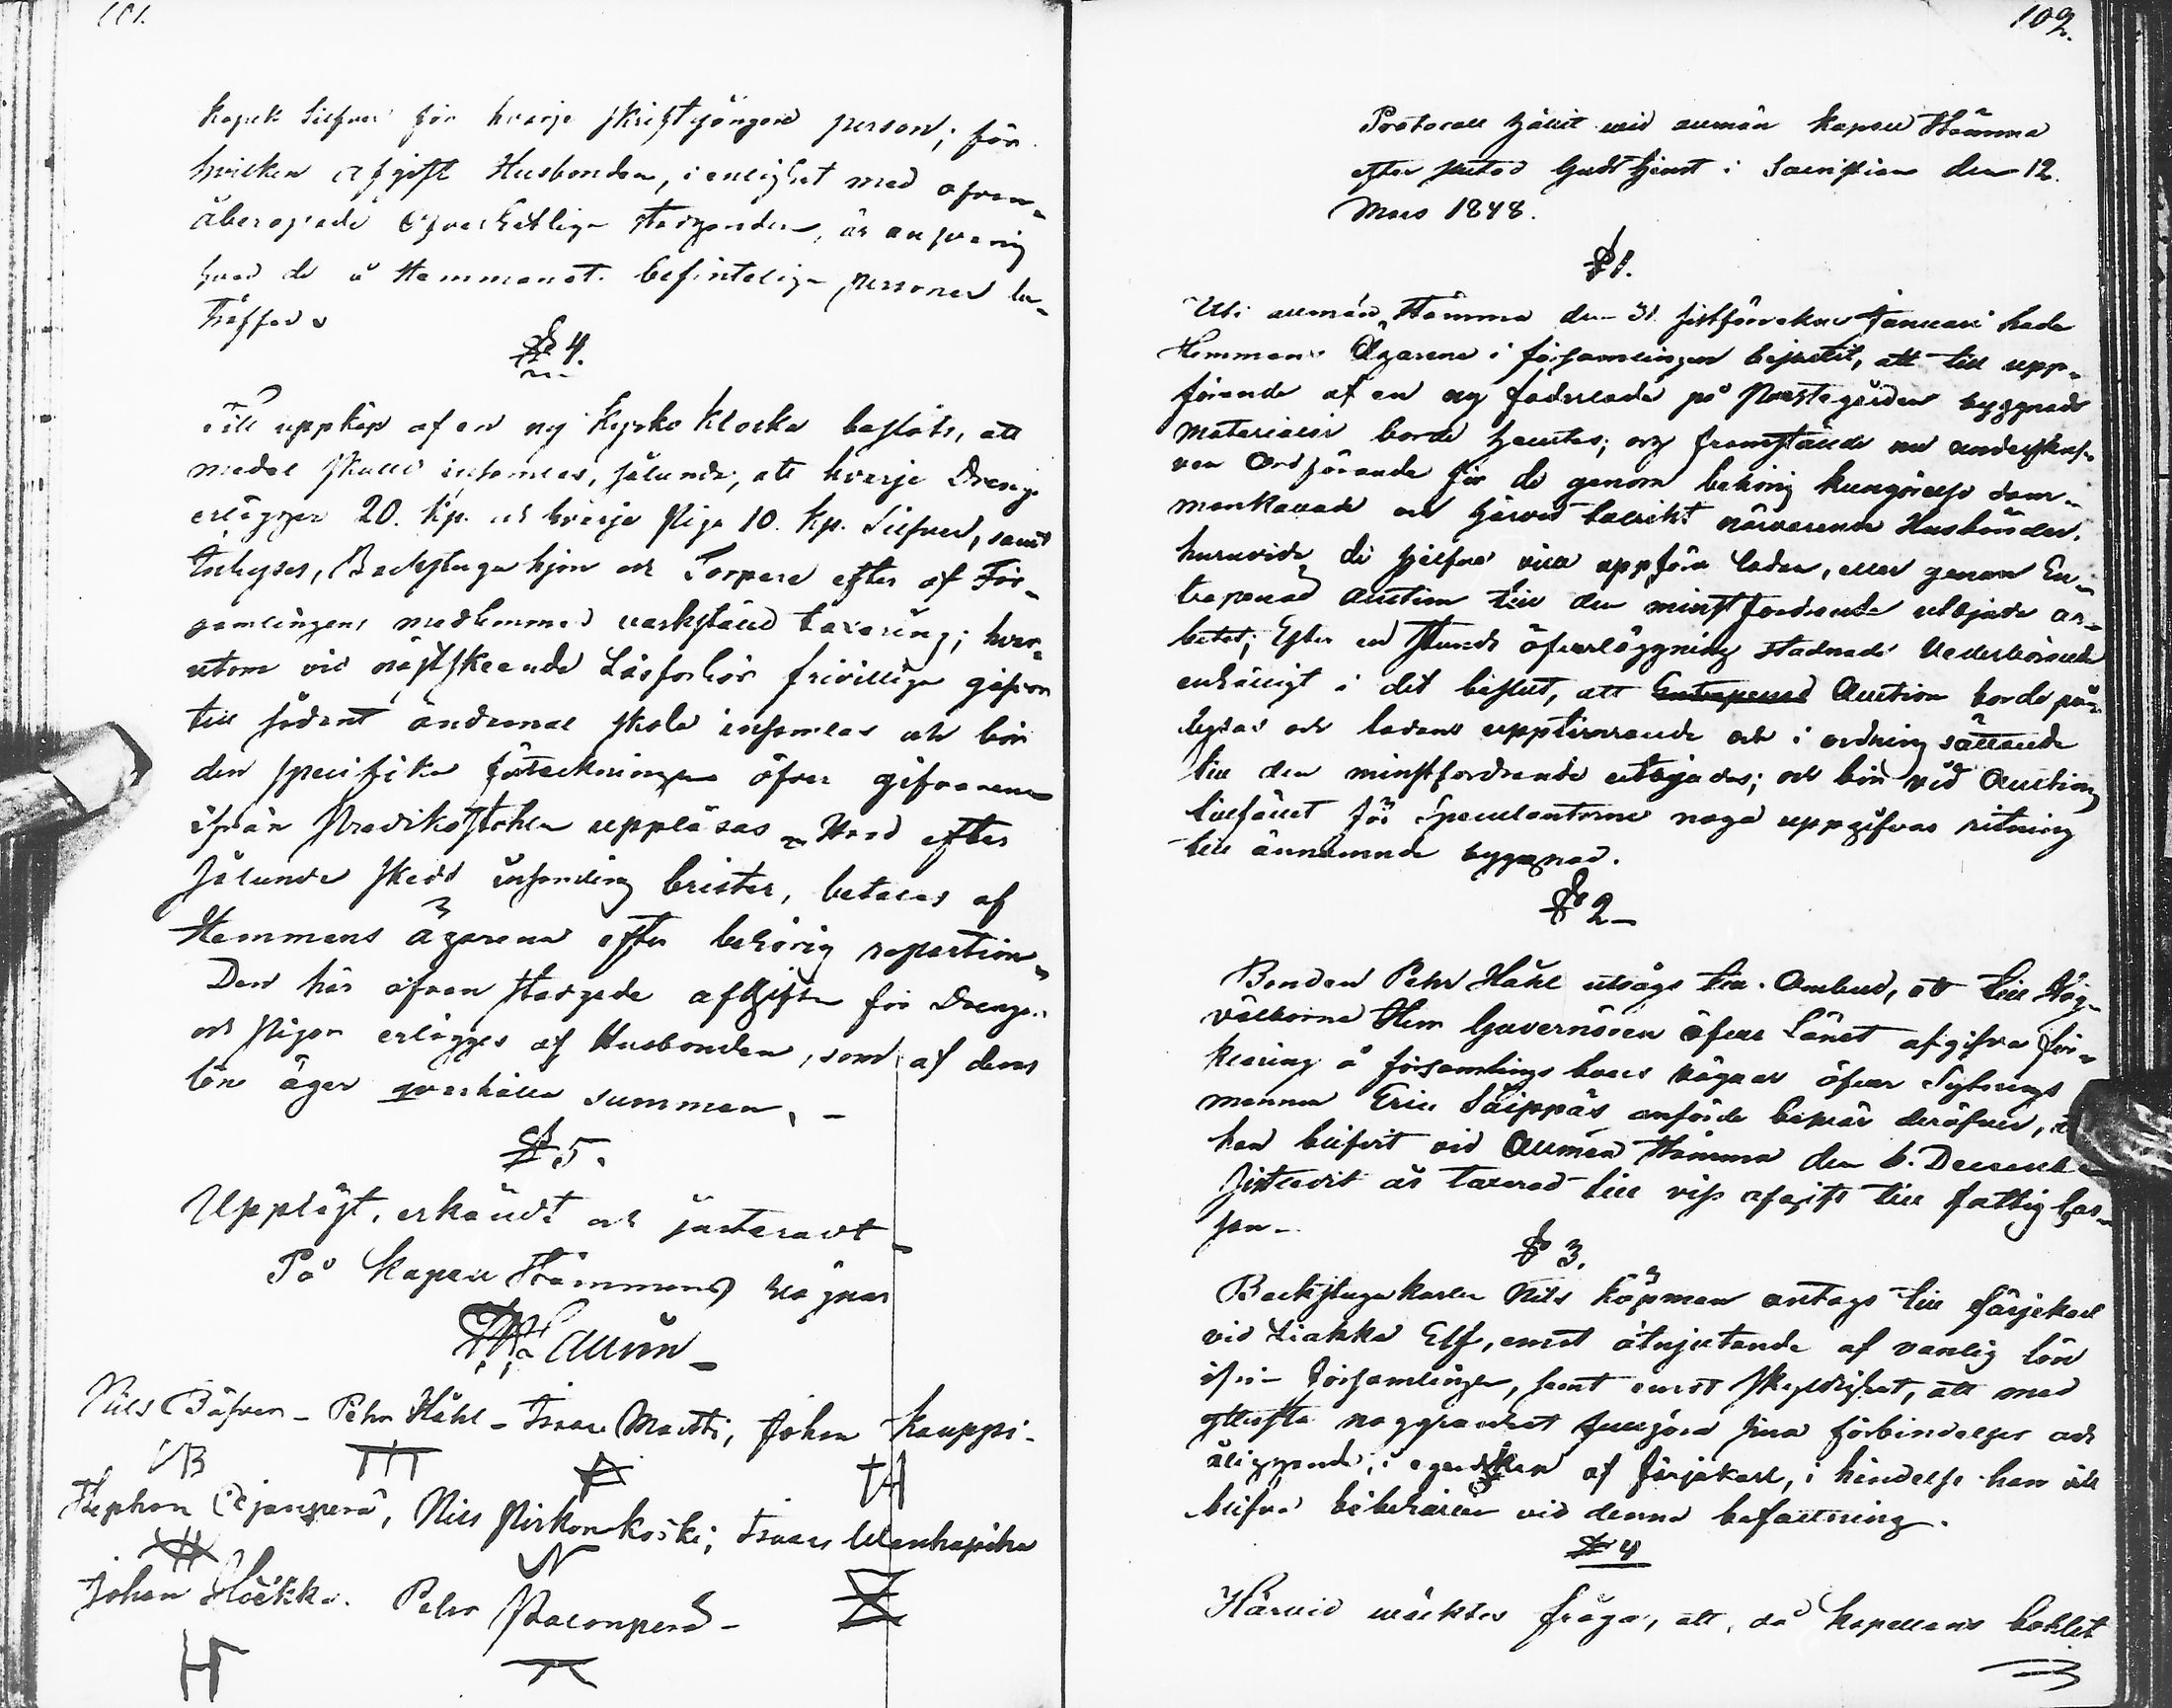 101.
kopek Silfver för hvarje skriftgången person; för
hvilken afgift Husbonden, i enlighet med ofvan-
åberopade Öfverhetliga stadganden, är ansvarig
hvad de å Hemmanet befinteliga personer be-
träffar.
§ 4.
Till uppköp af en ny Kyrko Klocka beslöts, att
medel skulle insamlas, sålunda, att hvarje Dreng
erlägger 20. kp. och hvarje Piga 10. kp. Silfver, samt
Inhyses, Backstuguhjon och Torpare efter af För-
samlingens medlemmar verkställd taxering; hvar-
utom vid nästskeende Läsförhör frivillige gåfvor
till sådant ändemål skola insamlas och bör
den specifika förteckningen öfver gifvarena
ifrån Predikostolen uppläsas. Hvad efter
sålunda skedd insamling brister, betales af
Hemmans Ägarena efter behörig repartion.
Den här ofvan stadgade afgiften för Drengar
och Pigor erlägges af Husbonden, som af deras
lön äger qvarhålla summan. -
§ 5.
Uppläst, erkändt och justeradt
På Kapell Stämmans vägnar
Nils Bäfver - Pehr Håhl - Isaac Martti, Johan Kauppi -
Stephan Ojanperä, Nils Pirkonkoski; Isaac Wanhapiha
Johan Höckkä. Pehr Paconperä -
102.
Protocoll hållit wid allmän Kapell Stämma
efter slutad Gudstjenst i Sacristian den 12.
Mars 1848.
§ 1.
Uti allmän Stämma den 31 sistförvekne Januari hade
Hemmans Ägarene i församlingen beslutit, att till upp-
förande af en ny foderlada på Prestegården byggnads
materialier borde hemtas; och framställde nu underskref-
ven Ordförande för de genom behörig kungörelse sam-
mankallade och härvid talrikt närvarande Husbönder,
huruvida de sjelfve vilja uppföra ladan, eller genom En-
treprenad Auction till den minstfordrande utbjuda ar-
betet; Efter en stunds öfverläggning stadnade Vederbörande
enhälligt i det beslut, att Entreprenad Auction borde på-
lysas och ladans upptimrande och i ordning sättande
till den minstfordrande utbjudas; och bör vid Auctions
tillfället för Speculanterne noga uppgifvas ritning
till ännämnde byggnad.
§ 2 -
Bonden Pehr Håhl utsågs till Ombud, att till Hög-
välborne Herr Guvernören öfver Länet afgifva för-
klaring å församlingsboers vägnar öfver Sytnings
mannen Eric Säippäs anförde besvär deröfver, att
han blifvit vid Allmän Stämma den 6. December
sistledit år taxerad till viss afgift till fattigkas-
san -
§ 3.
Backstugukarlen Nils Köpman antogs till färjekarl
vid Liakka Elf, emot åtnjutande af vanlig lön
ifrån församlingen, samt emot skyldighet, att med
yttersta noggranhet fullgöra sina förbindelser och
åliggande, i egenskap af färjekarl, i händelse han vill
blifva bibehållen vid denna befattning.
§ 4
Härvid wäcktes fråga, att, då kapellans bohlet